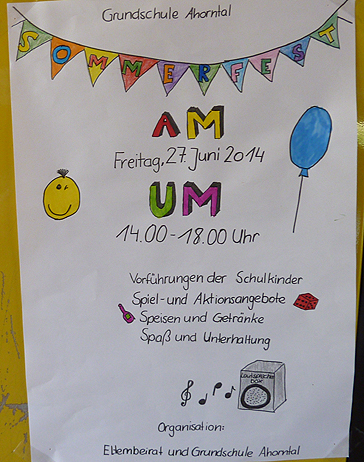 Grundschule Ahorntal
SOMMERFEST
AM
Freitag, 27. Juni 2014
UM
14.00-18.00 Uhr
Vorführungen der Schulkinder
Spiel- und Aktionsangebote
Speisen und Getränke
Spaß und Unterhaltung
Lautsprecher
BOX
Organisation:
Elternbeirat und Grundschule Ahorntal